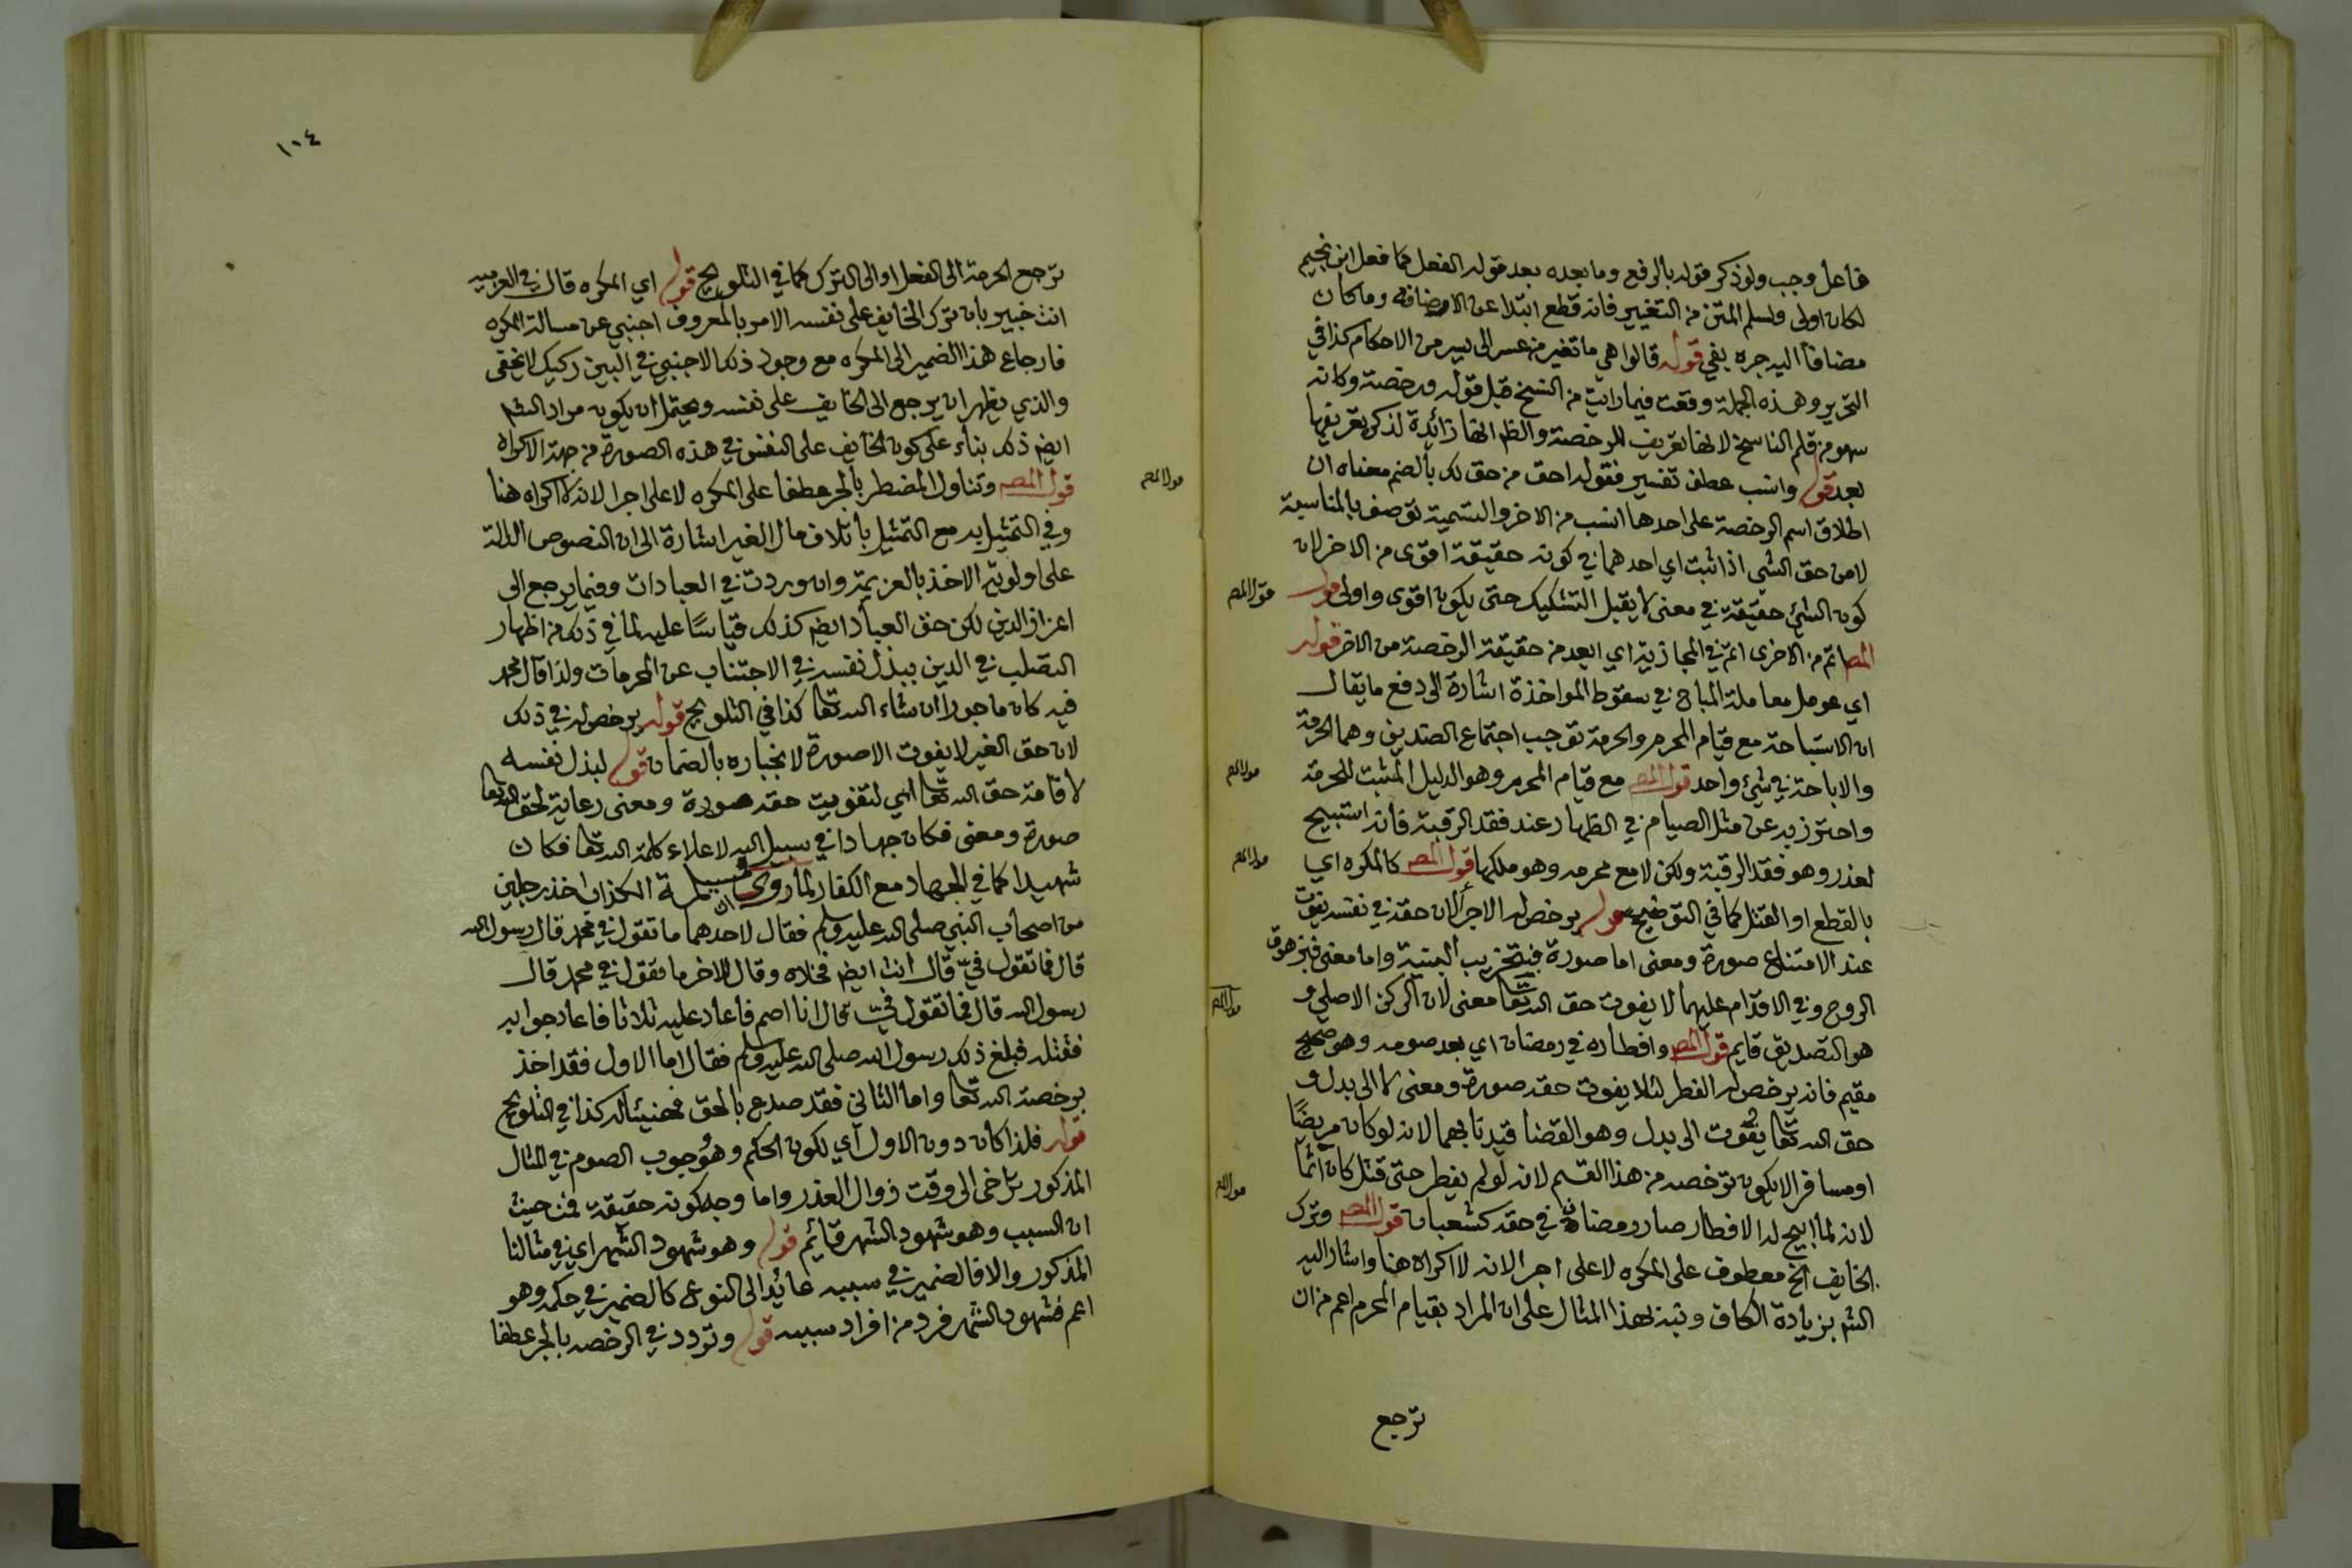 فاعل وجب ولو ذكر قوله بالرفع وما بعده بعد قوله الفعل كما فعل ابن نجيم
لكان اولى ولسلم المتن من التغيير فانه قطع ابتلا عن الاضافه وما كان
مضافا اليه جره بفي قوله قالوا هي ما تغير من عسر الى يسر من الاحكام كذا في
التحرير وهذه الجملة وقعت فيما رايت من النسخ قبل قوله ورخصة وكانه
سهو من قلم الناسخ لانها تعريف للرخصة والظ انها زائدة لذكر تعريفها
بعد قوله وانسب عطف تفسير فقوله احق من حق لك بالضم معناه ان
اطلاق اسم الرخصة على احدها انسب من الاخر والتسمية توصف بالمناسبة
لا من حق الشي اذا ثبت اي احدهما في كونه حقيقة اقوى من الاخر لان
كون الشئ حقيقة في معنى لا يقبل التشكيك حتى يكون اقوى واولى قول
المصـ اتم من الاخرى اتم في المجازية اي ابعد من حقيقة الرخصة من الاخر قوله
اي عومل معاملة المباح في سقوط المواخذة اشارة الى دفع ما يقال
ان الاستباحة مع قيام المحرم والحرمة توجب اجتماع الضدين وهما الحرمة
والاباحة في شئ واحد قول المصـ مع قيام المحرم وهو الدليل المثبت للحرمة
واحترز به عن مثل الصيام في الظهار عند فقد الرقبة فانه استبيح
لعذر وهو فقد الرقبة ولكن لا مع محرمه وهو ملكها قول المصـ كالمكره اي
بالقطع او القتل كما في التوضيح قوله يرخص له الاجرا لان حقه في نفسه يفوت
عند الامتناع صورة ومعنى اما صورة فبتخريب البنية واما معنى فبزهوق
الروح وفي الاقدام عليهما لا يفوت حق الله تعا معنى لان الركن الاصلي و
هو التصديق قايم قول المصـ وافطاره في رمضان اي بعد صومه وهو صحيح
مقيم فانه يرخص له الفطر لئلا يفوت حقه صورة ومعنى لا الى بدل و
حق الله تعا يفوت الى بدل وهو القضا قيدنا بهما لانه لو كان مريضًا
او مسافر الا يكون ترخصه من هذا القسم لانه لو لم يفطر حتى قتل كان آثمًا
لانه لما ابيح له الافطار صار رمضان في حقه كشعبان قول المصـ وترك
الخايف الخ معطوف على المكره لا على اجرا لانه لا اكراه هنا واشار اليه
الشـ بزيادة الكاف وتبه بهذا المثال على ان المراد بقيام المحرم اعم من ان
ترجع
قول المصـ
قول المصـ
قول المصـ
قول المصـ
قول المصـ
١٠٤
ترجع الحرمة الى الفعل او الى الترك كما في التلويح قوله اي المكره قال في العزميه
انت خبير بان ترك الخايف على نفسه الامر بالمعروف اجنبي عن مسالة المكره
فارجاع هذا الضمير الى المكره مع وجود ذلك الاجنبي في البين ركيك لا يخفى
والذي يظهر ان يرجع الى الخايف على نفسه ويحتمل ان يكون مراد الشـ
ايضـ ذلك بناء على كون الخايف على النفس في هذه الصورة من جهة الاكراه
قول المصـ وتناول المضطر بالجر عطفا على المكره لا على اجرا لانه لا اكراه هنا
وفي التمثيل به مع التمثيل باتلاف مال الغير اشارة الى ان النصوص الدالة
على اولوية الاخذ بالعزيمة وان وردت في العبادات وفيما يرجع الى
اعزاز الدين لكن حق العباد ايضـ كذلك قياسًا عليه لما في ذلك من اظهار
التصلب في الدين ببذل نفسه في الاجتناب عن المحرمات ولذا قال محمد
فيه كان ماجورا ان شاء الله تعا كذا في التلويح قوله يرخص له في ذلك
لان حق الغير لا يفوت الا صورة لانجباره بالضمان قوله لبذل نفسه
لاقامة حق الله تعا اي لتفويت حقه صورة ومعنى رعاية لحق الله تعا
صورة ومعنى فكان جهادا في سبيل الله لاعلاء كلمة الله تعا فكان
شهيدا كما في الجهاد مع الكفار لما روي ان مسيلمة الكذاب اخذ رجلين
من اصحاب النبي صلى الله عليه وسلم فقال لاحدهما ما تقول في محمد قال رسول الله
قال فما تقول فيّ قال انت ايضـ فخلاه وقال للاخر ما تقول في محمد قال
رسول الله قال فما تقول فيّ قال انا اصم فاعاد عليه ثلاثا فاعاد جوابه
فقتله فبلغ ذلك رسول الله صلى الله عليه وسلم فقال اما الاول فقد اخذ
برخصة الله تعا واما الثاني فقد صدع بالحق فهنيئا له كذا في التلويح
قوله فلذا كان دون الاول اي لكون الحكم وهو وجوب الصوم في المثال
المذكور تراخى الى وقت زوال العذر واما وجه كونه حقيقة فمن حيث
ان السبب وهو شهود الشهر قائم قوله وهو شهود الشهر اي في مثالنا
المذكور والا فالضمير في سببه عائد الى النوع كالضمير في حكمه وهو
اعم فشهود الشهر فرد من افراد سببه قوله وتردد في الرخصه بالجر عطفا
قول المصـ